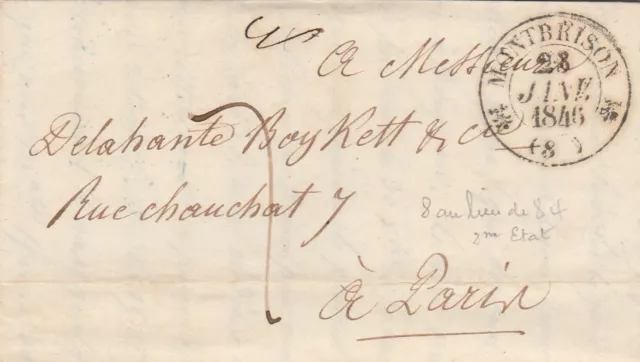 A Messieurs
Delahante Boykett & Cie
Rue chauchat 7
à Paris
MONTBRISON
28
JANV
1846
(8 )
7
8 au lieu de 84
2me Etat